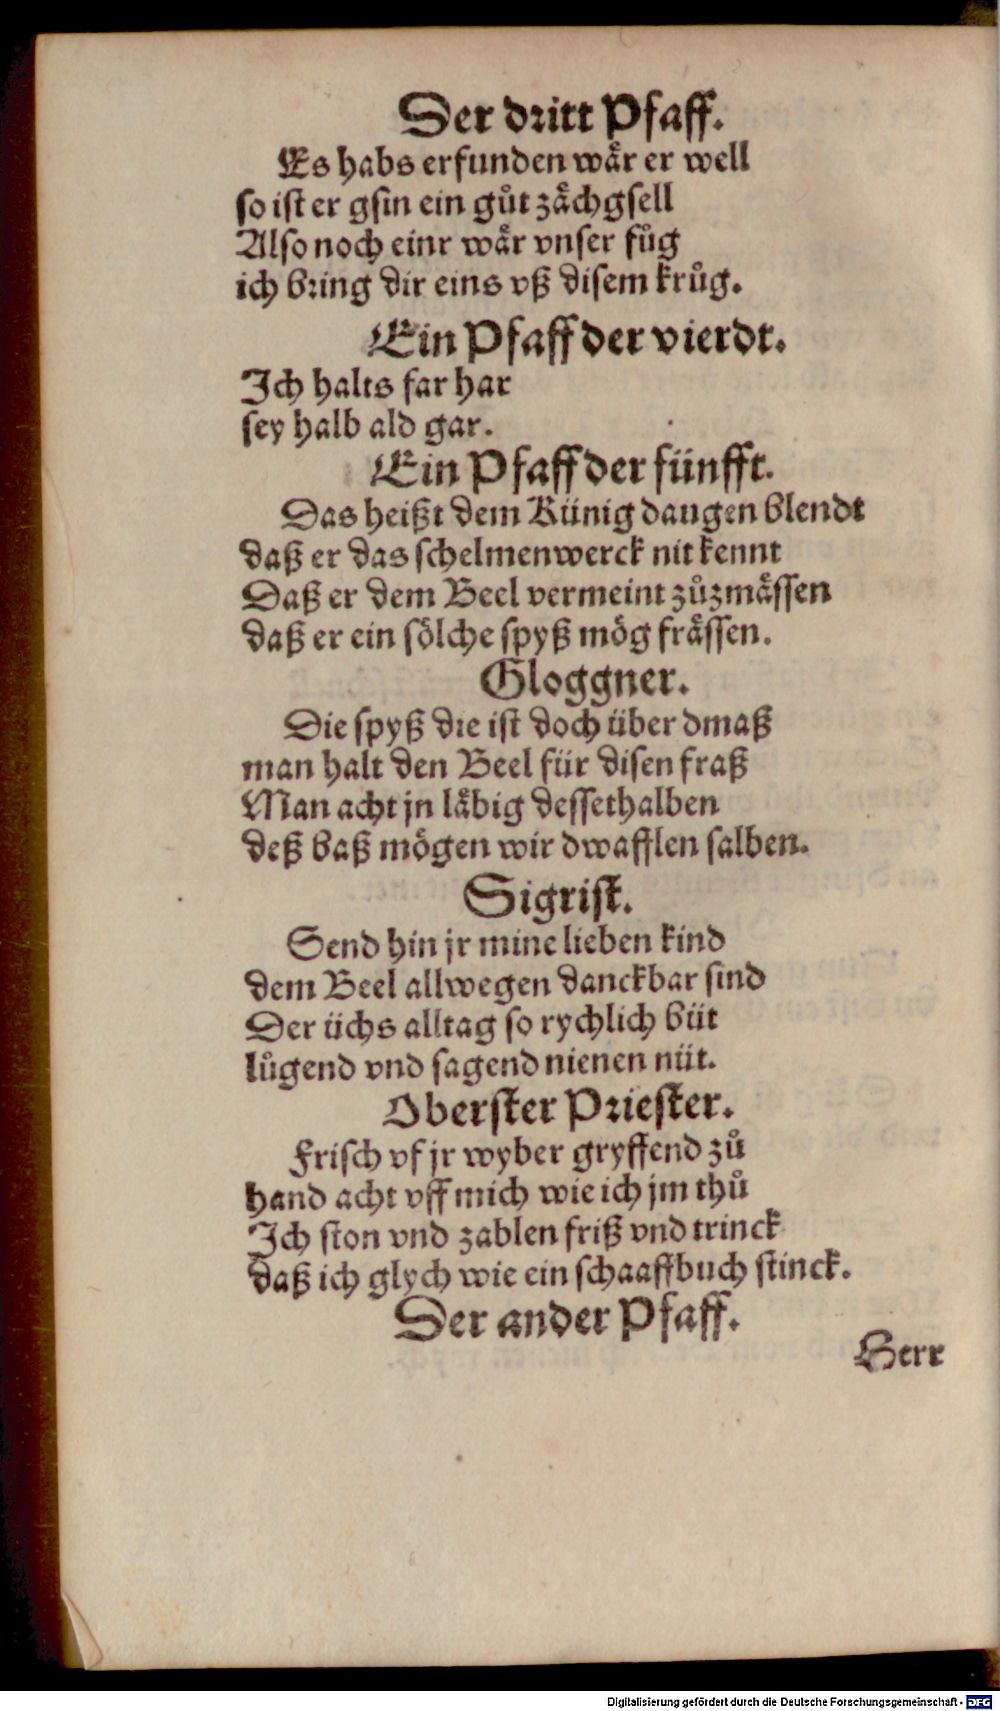 Der dritt Pfaff.
Es habs erfunden wår er well
so ist er gsin ein gůt zåchgsell
Also noch einr wår vnser fůg
ich bring dir eins vß disem krůg.
Ein Pfaff der vierdt.
Ich halts far har
sey halb ald gar.
Ein Pfaff der fünfft.
Das heißt dem Künig daugen blendt
daß er das schelmenwerck nit kennt
Daß er dem Beel vermeint zůzmåssen
daß er ein sölche spyß mög fråssen.
Gloggner.
Die spyß die ist doch über dmaß
man halt den Beel für disen fraß
Man acht jn låbig dessethalben
deß baß mögen wir dwafflen salben.
Sigrist.
Send hin jr mine lieben kind
dem Beel allwegen danckbar sind
Der üchs alltag so rychlich büt
lůgend vnd sagend nienen nüt.
Oberster Priester.
Frisch vf jr wyber gryffend zů
hand acht vff mich wie ich jm thů
Ich ston vnd zablen friß vnd trinck
daß ich glych wie ein schaaffbuch stinck.
Der ander Pfaff.
Herr
Digitalisierung gefördert durch die Deutsche Forschungsgemeinschaft - DFG